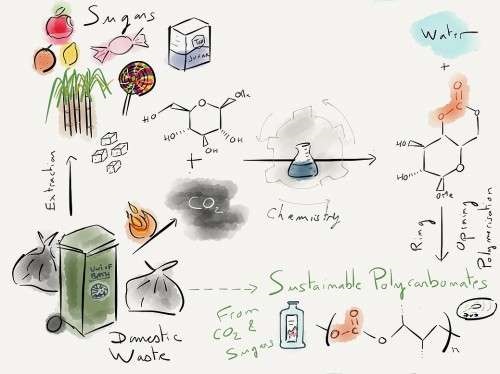 Sugars
Water
SUGAR
+
O
O
O
HO
O
OMe
HO
HO
OH
OH
+
HO
HO
O
OMe
Extraction
CO2
Chemistry
Ring
Opening
Polymerisation
UNI OF
BATH
Sustainable Polycarbonates
From
CO2 &
Sugars
O
O
O
n
Domestic
Waste